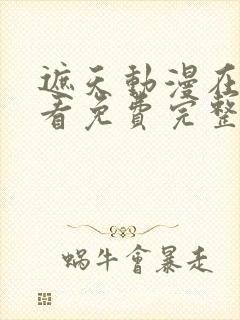 遮天動漫在
看免費完整
蝸牛會暴走